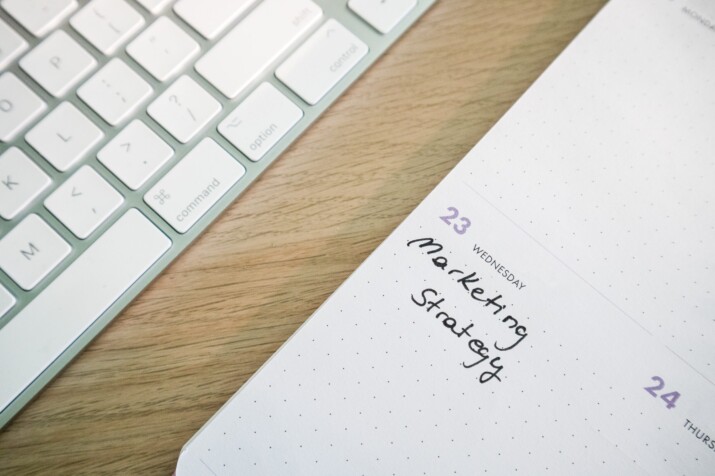 P
:
;
"
'
shift
control
O
L
>
.
?
/
option
K
<
,
⌘
command
M
MONDA
23
WEDNESDAY
Marketing
Strategy
24
THURS